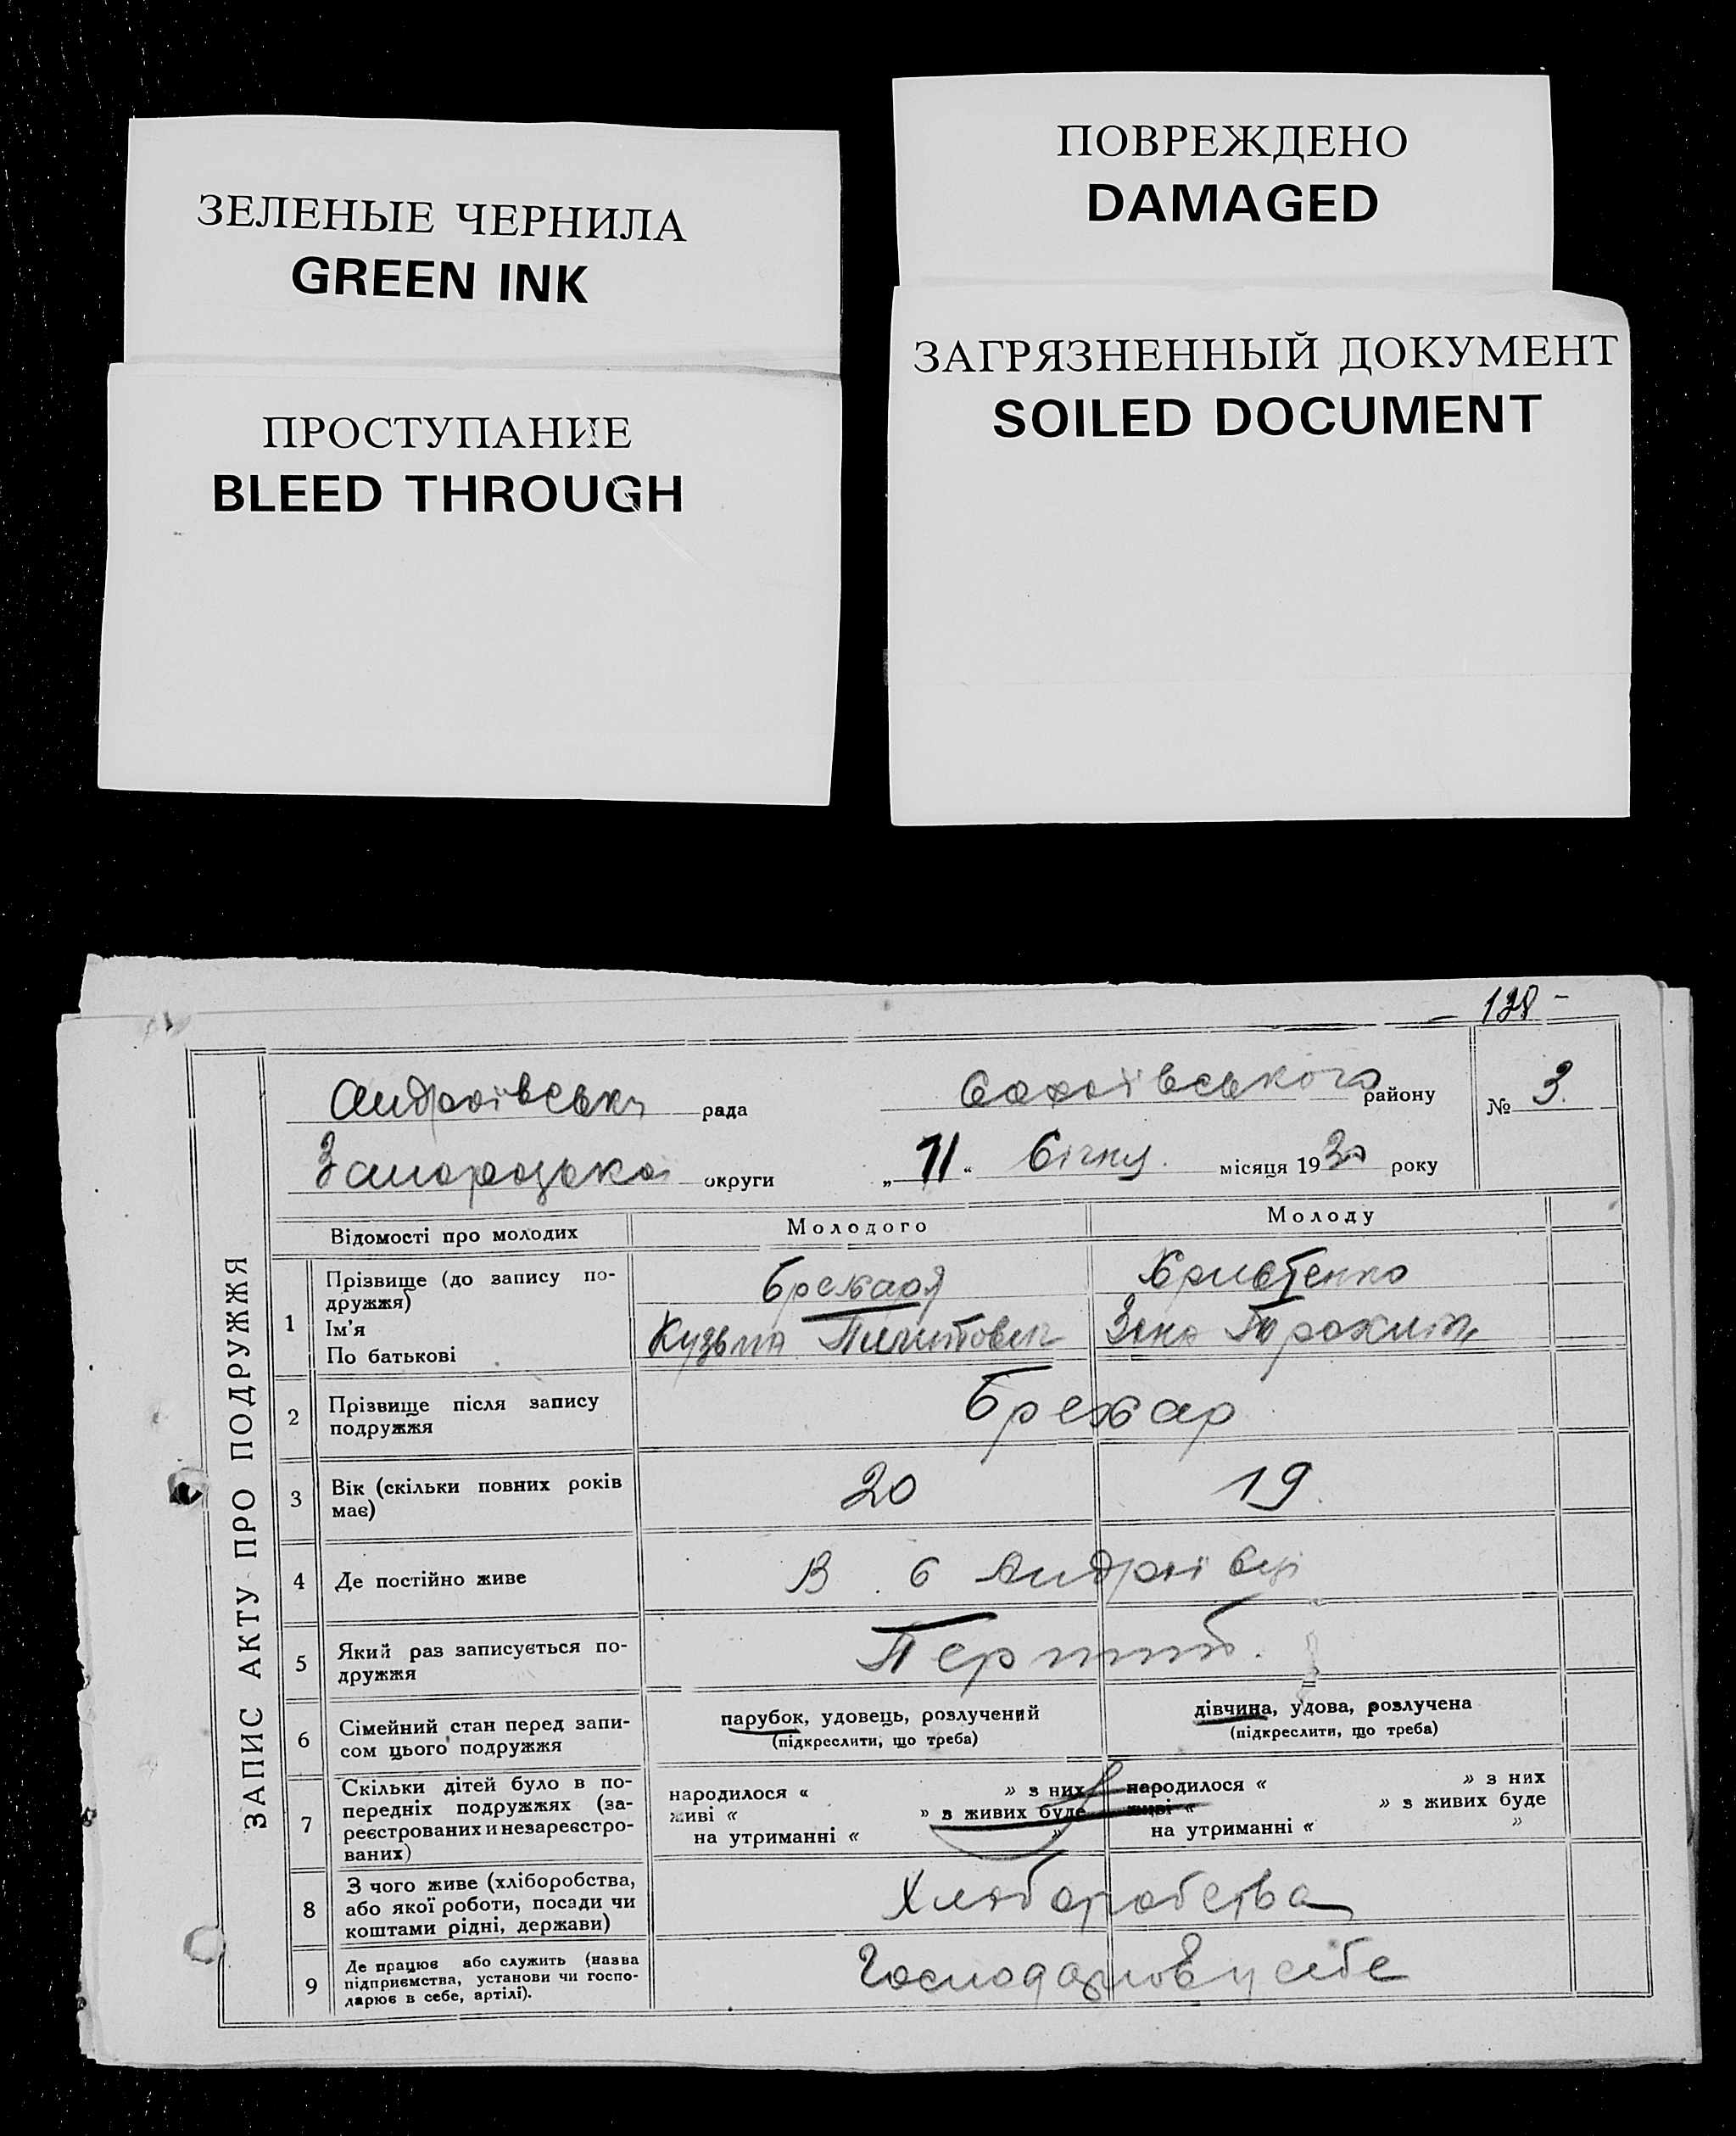 ЗЕЛЕНЫЕ ЧЕРНИЛА
GREEN INK
ПРОСТУПАНИЕ
BLEED THROUGH
ПОВРЕЖДЕНО
DAMAGED
ЗАГРЯЗНЕННЫЙ ДОКУМЕНТ
SOILED DOCUMENT
138 -
ЗАПИС АКТУ ПРО ПОДРУЖЖЯ
Андріївська рада району № 3.
округи „11“ Січня місяця 1930 року
Відомості про молодих Молодого Молоду
1 Прізвище (до запису по-
дружжя)
Ім'я
По батькові
Кузьма
2 Прізвище після запису
подружжя
3 Вік (скільки повних років
має)
20 19
4 Де постійно живе В с Андріївці
5 Який раз записується по-
дружжя
Перший.
6 Сімейний стан перед запи-
сом цього подружжя
парубок, удовець, розлучений
(підкреслити, що треба)
дівчина, удова, розлучена
(підкреслити, що треба)
7 Скільки дітей було в по-
передніх подружжях (за-
реєстрованих и незареєстро-
ваних)
народилося « » з них
живі « » з живих буде
на утриманні « »
народилося « » з них
живі « » з живих буде
на утриманні « »
8 З чого живе (хліборобства,
або якої роботи, посади чи
коштами рідні, держави)
Хліборобства
9 Де працює або служить (назва
підприємства, установи чи госпо-
дарює в себе, артілі).
у себе